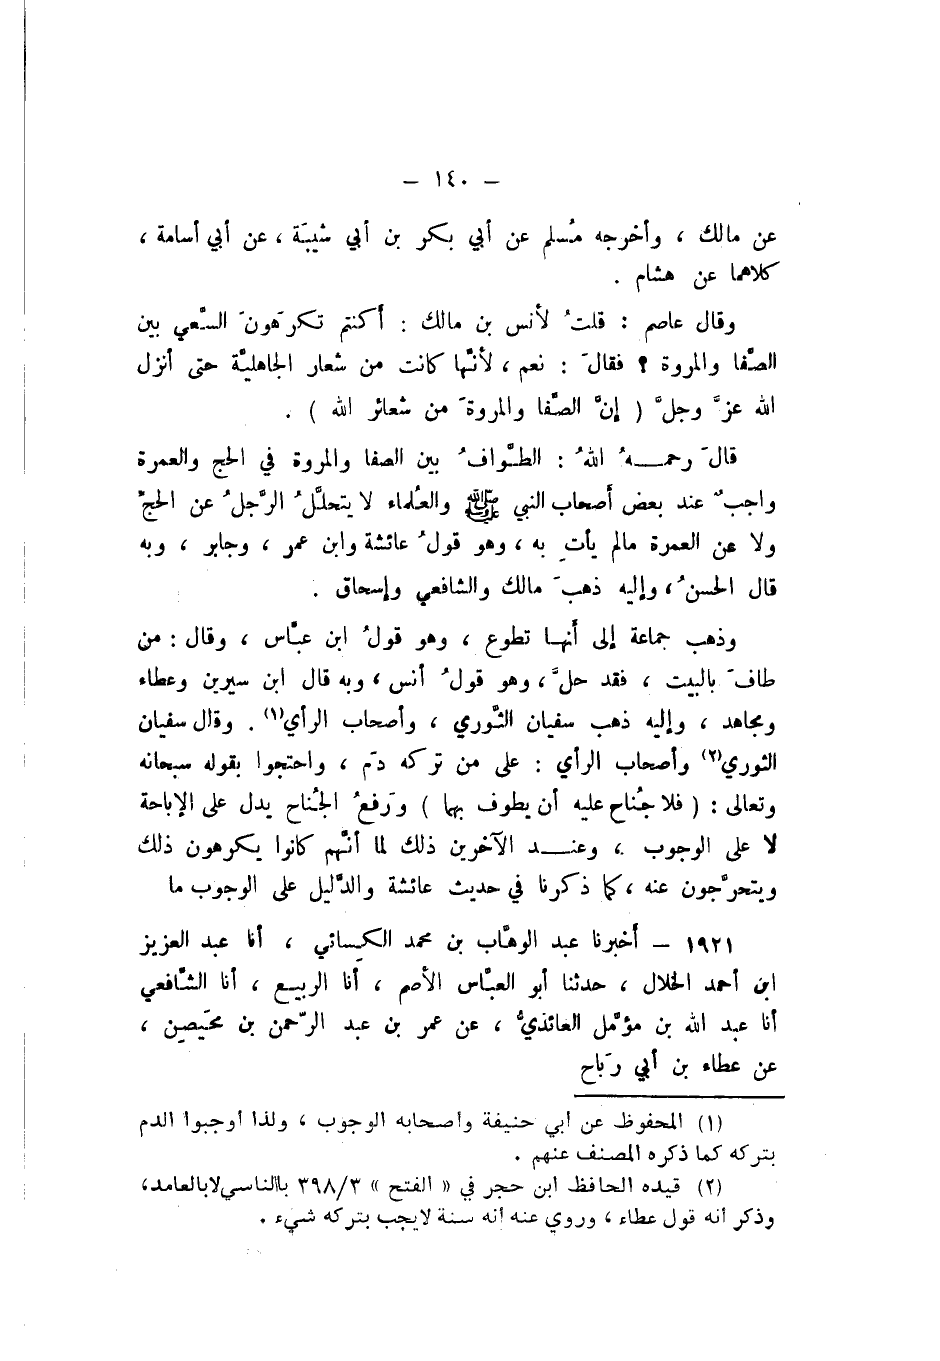 — ١٤٠ —
عن مالك ، وأخرجه مُسلم عن أبي بكر بن أبي شيبَة ، عن أبي أسامة ،
كلاهما عن هشام .
وقال عاصم : قلتُ لأنس بن مالك : أكنتم تكرَهونَ السَّعي بين
الصَّفا والمروة ؟ فقالَ : نعم ، لأنَّها كانت من شعار الجاهليَّة حتى أنزل
الله عزَّ وجلَّ ( إنَّ الصَّفا والمروةَ من شعائر الله ) .
قالَ رحمـــهُ اللهُ : الطَّوافُ بين الصفا والمروة في الحج والعمرة
واجبٌ عند بعض أصحاب النبي ﷺ والعُلماء لا يتحلَّلُ الرَّجلُ عن الحجِّ
ولا عن العمرة مالم يأتِ به ، وهو قولُ عائشة وابن عمر ، وجابر ، وبه
قال الحسنُ ، وإليه ذهبَ مالك والشافعي وإسحاق .
وذهب جماعة إلى أنهـا تطوع ، وهو قولُ ابن عبَّاس ، وقال : من
طافَ بالبيت ، فقد حلَّ ، وهو قولُ أنس ، وبه قال ابن سيرين وعطاء
ومجاهد ، وإليه ذهب سفيان الثَّوري ، وأصحاب الرأي(١) . وقال سفيان
الثوري(٢) وأصحاب الرأي : على من تركه دَم ، واحتجوا بقوله سبحانه
وتعالى : ( فلا جُناح عليه أن يطوف بهما ) ورَفعُ الجُناح يدل على الإباحة
لا على الوجوب ، وعنـــد الآخرين ذلك لما أنَّهم كانوا يكرهون ذلك
ويتحرَّجون عنه ، كما ذكرنا في حديث عائشة والدَّليل على الوجوب ما
١٩٢١ — أخبرنا عبد الوهَّاب بن محمد الكِسائي ، أنا عبد العزيز
ابن أحمد الخلال ، حدثنا أبو العبَّاس الأصم ، أنا الربيع ، أنا الشَّافعي
أنا عبد الله بن مؤمَّل العائذيُّ ، عن عمر بن عبد الرَّحمن بن محَيصِن ،
عن عطاء بن أبي رَباح
(١) المحفوظ عن أبي حنيفة وأصحابه الوجوب ، ولذا أوجبوا الدم
بتركه كما ذكره المصنف عنهم .
(٢) قيده الحافظ ابن حجر في « الفتح » ٣٩٨/٣ بالناسي لابالعامد،
وذكر أنه قول عطاء ، وروي عنه أنه سنة لايجب بتركه شيء .